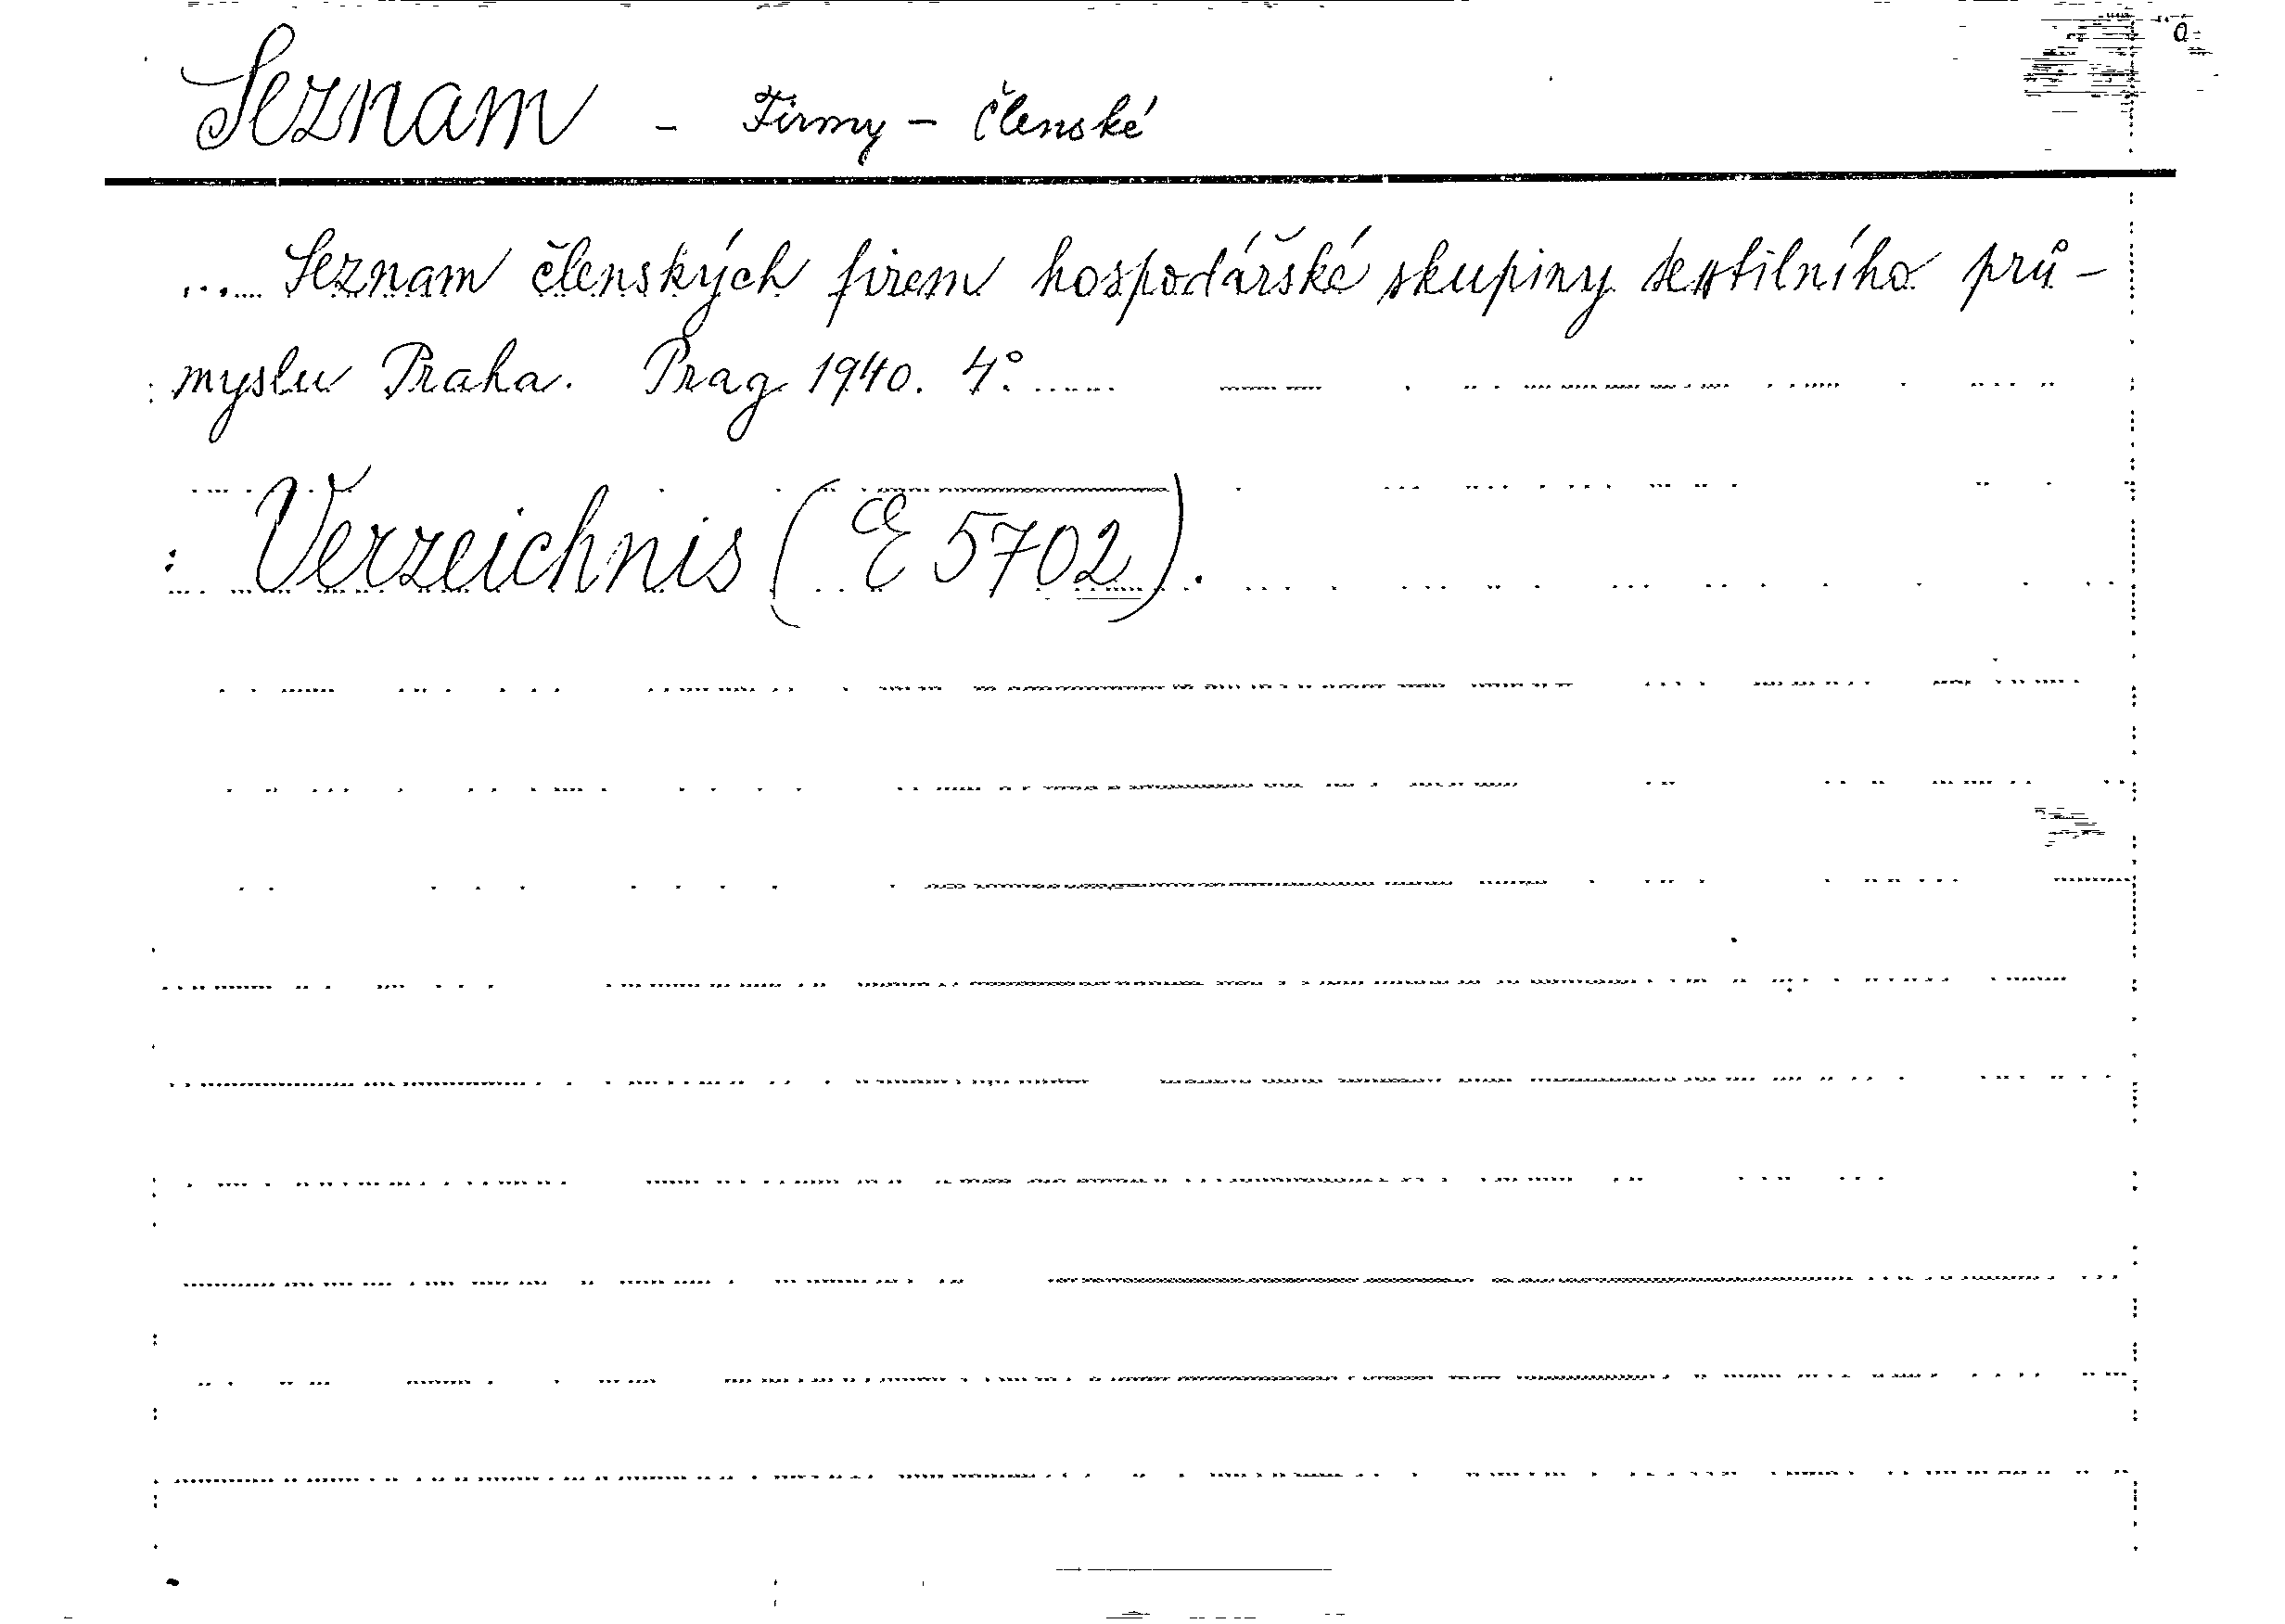 Seznam - Firmy - Členské
... Seznam členských firem hospodářské skupiny textilního prů-
myslu Praha. Prag 1940. 4°.
Verzeichnis ( E 5702 ).